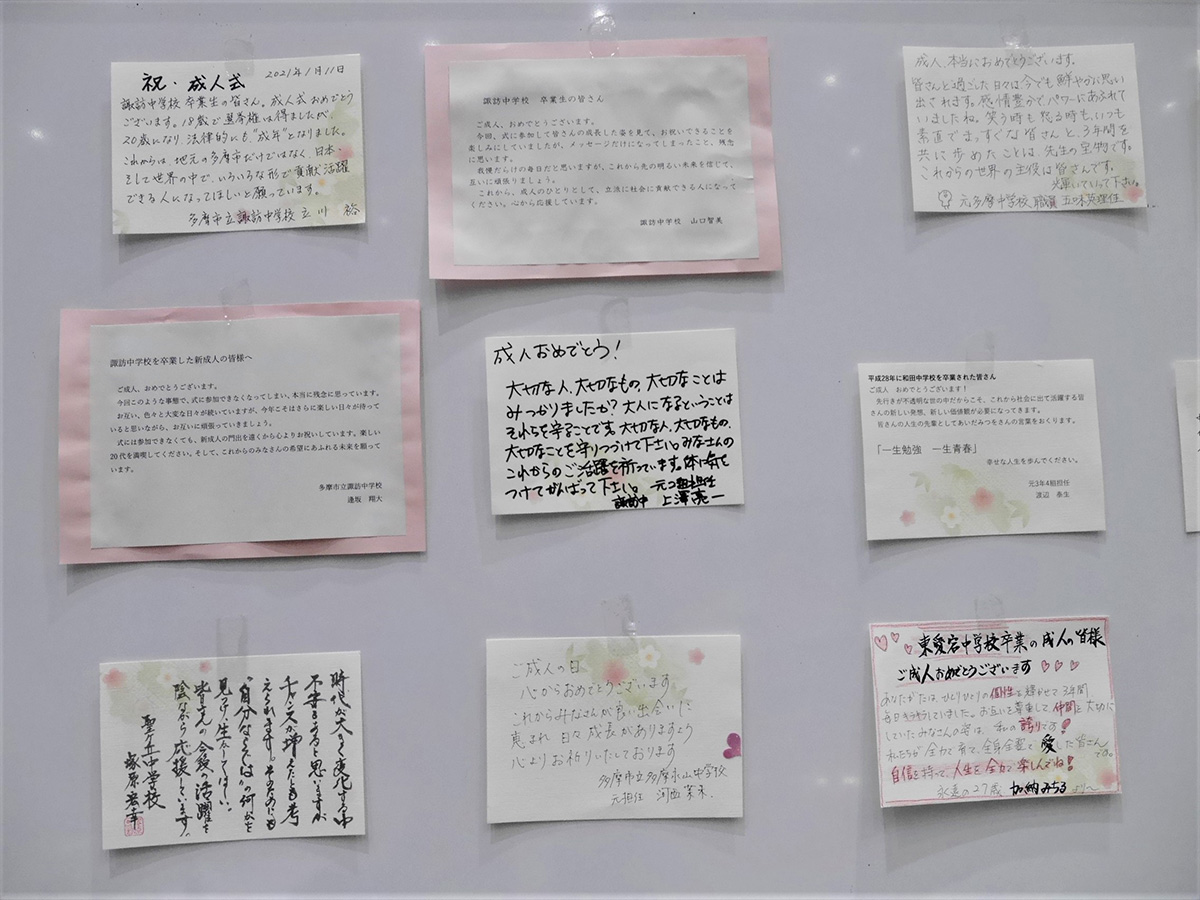 祝・成人式 2021年1月11日
諏訪中学校 卒業生の皆さん。成人式おめでとう
ございます。18歳で選挙権は得ましたが、
20歳になり 法律的にも"成年"となりました。
これからは、地元の多摩市だけではなく、日本・
そして世界の中で、いろいろな形で貢献・活躍
できる人になってほしいと願っています。
多摩市立諏訪中学校 立川 裕
諏訪中学校 卒業生の皆さん
ご成人、おめでとうございます。
今回、式に参加して皆さんの成長した姿を見て、お祝いできることを
楽しみにしていましたが、メッセージだけになってしまったこと、残念
に思います。
我慢だらけの毎日だと思いますが、これから先の明るい未来を信じて、
互いに頑張りましょう。
これから、成人のひとりとして、立派に社会に貢献できる人になって
ください。心から応援しています。
諏訪中学校 山口智美
成人、本当におめでとうございます。
皆さんと過ごした日々は今でも鮮やかに思い
出されます。感情豊かで、パワーにあふれて
いましたね。笑う時も怒る時も、いつも
素直でまっすぐな皆さんと、3年間を
共に歩めたことは、先生の宝物です。
これからの世界の主役は皆さんです。
輝いていって下さい。
元多摩中学校職員 五味英理佳
諏訪中学校を卒業した新成人の皆様へ
ご成人、おめでとうございます。
今回このような事態で、式に参加できなくなってしまい、本当に残念に思っています。
お互い、色々と大変な日々が続いていますが、今年こそはさらに楽しい日々が待って
いると思いながら、お互いに頑張っていきましょう。
式には参加できなくても、新成人の門出を遠くから心よりお祝いしています。楽しい
20代を満喫してください。そして、これからのみなさんの希望にあふれる未来を願って
います。
多摩市立諏訪中学校
逢坂 翔大
成人おめでとう!
大切な人、大切なもの、大切なことは
みつかりましたか?大人になるということは
それらを守ることです。大切な人、大切なもの、
大切なことを守りつづけて下さい。みなさんの
これからのご活躍を祈っています。体に気を
つけてがんばって下さい。 元2組担任
諏訪中 上澤亮一
平成28年に和田中学校を卒業された皆さん
ご成人 おめでとうございます!
先行きが不透明な世の中だからこそ、これから社会に出て活躍する皆
さんの新しい発想、新しい価値観が必要になってきます。
皆さんの人生の先輩としてあいだみつをさんの言葉をおくります。
「一生勉強 一生青春」
幸せな人生を歩んでください。
元3年4組担任
渡辺 泰生
時代が大きく変化する中
不安もあると思いますが
チャンスが増えたとも考
えられます。そのためにも
"自分ならでは"の何かを
見つけ生かしてほしい。
皆さんの今後の活躍を
陰ながら応援しています。
聖ヶ丘中学校
塚原宏幸
ご成人の日
心からおめでとうございます
これからみなさんが良い出会いに
恵まれ 日々成長がありますよう
心よりお祈りいたしております
多摩市立多摩永山中学校
元担任 河西
東愛宕中学校卒業の成人の皆様
ご成人おめでとうございます
あなたがたは、ひとりひとりの個性を輝かせて3年間
毎日をすごしていました。お互いを尊重して仲間を大切に
していたみなさんの姿は、私の誇りです!
私たちが全力で育て、全身全霊で愛した皆さん
です。
自信を持って、人生を全力で楽しんでね!
永遠の27歳 加納みちるより〜